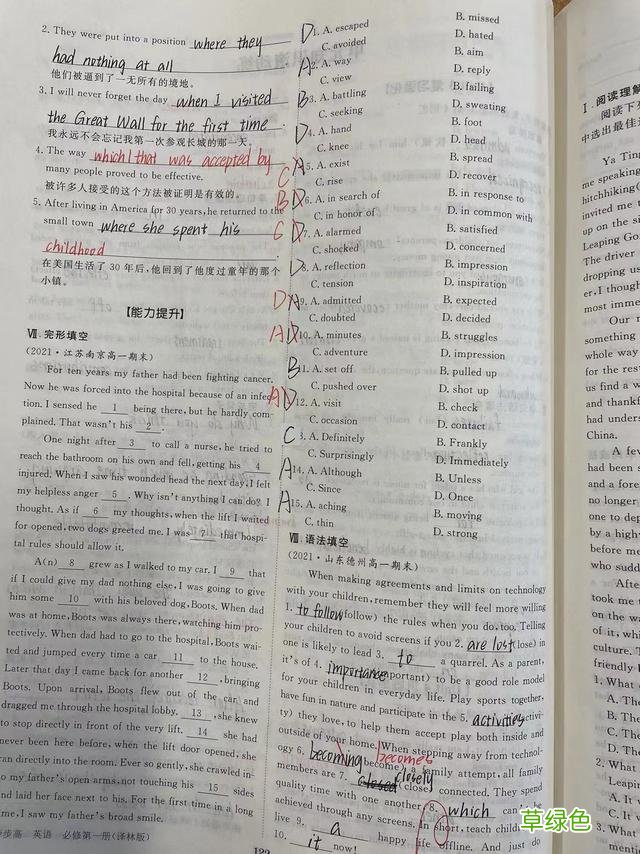 2. They were put into a position where they
had nothing at all
他们被逼到了一无所有的境地。
3. I will never forget the day when I visited
the Great Wall for the first time.
我永远不会忘记我第一次参观长城的那一天。
4. The way which/that was accepted by
many people proved to be effective.
被许多人接受的这个方法被证明是有效的。
5. After living in America for 30 years, he returned to the
small town where she spent his
childhood.
在美国生活了 30 年后,他回到了他度过童年的那个
小镇。
【能力提升】
Ⅶ. 完形填空
(2021·江苏南京高一期末)
For ten years my father had been fighting cancer.
Now he was forced into the hospital because of an infec
tion. I sensed he 1 being there, but he hardly com-
plained. That wasn't his 2 .
One night after 3 to call a nurse, he tried to
reach the bathroom on his own and fell, getting his 4
injured. When I saw his wounded head the next day, I felt
my helpless anger 5 . Why isn't anything I can do? I
thought. As if 6 my thoughts, when the lift I waited
for opened, two dogs greeted me. I was 7 that hospi-
tal rules should allow it.
A(n) 8 grew as I walked to my car. I 9 that
if I could give my dad nothing else, I was going to give
him some 10 with his beloved dog, Boots. When dad
was at home, Boots was always there, watching him pro-
tectively. When dad had to go to the hospital, Boots wai-
ted and jumped every time a car 11 to the house.
Later that day I came back for another 12 , bringing
Boots. Upon arrival, Boots flew out of the car and
dragged me through the hospital lobby. 13 , she knew
to stop directly in front of the very lift. 14 she had
never been here before, when the lift door opened, she
ran directly into the room. Ever so gently, she crawled in-
to my father's open arms, not touching his 15 sides
and laid her face next to his. For the first time in a long
time, I saw my father's broad smile.
步步高 英语 必修第一册(译林版)
D 1. A. escaped B. missed
C. avoided D. hated
A 2. A. way B. aim
C. view D. reply
B 3. A. battling B. failing
C. seeking D. sweating
D 4. A. hand B. foot
C. knee D. head
C A 5. A. exist B. spread
C. rise D. recover
B D 6. A. in search of B. in response to
C. in honor of D. in common with
C D 7. A. alarmed B. satisfied
C. shocked D. concerned
D 8. A. reflection B. impression
C. tension D. inspiration
D A 9. A. admitted B. expected
C. doubted D. decided
A D 10. A. minutes B. struggles
C. adventure D. impression
B 11. A. set off B. pulled up
C. pushed over D. shot up
A D 12. A. visit B. check
C. occasion D. contact
C 3. A. Definitely B. Frankly
C. Surprisingly D. Immediately
A 14. A. Although B. Unless
C. Since D. Once
A 15. A. aching B. moving
C. thin D. strong
Ⅷ. 语法填空
(2021·山东德州高一期末)
When making agreements and limits on technology
with your children, remember they will feel more willing
1. to follow (follow) the rules when you do, too. Telling
your children to avoid screens if you 2. are lost (lose) in
one is likely to lead 3. to a quarrel. As a parent,
it's of 4. importance (important) to be a good role model
for your children in everyday life. Play sports together,
have fun in nature and participate in the 5. activities (activi-
ty) they love, to help them accept play both inside and
outside of your home. When stepping away from technol-
ogy 6. becoming becomes (become) a family attempt, all family
members are 7. closed closely (close) connected. They spend
quality time with one another 8. which can't be
achieved through any screens. In short, teach children to
live 9. a happy life offline. And just do
10. it now!
122
Ⅰ. 阅读理解
阅读下
中选出最佳
Ya Ting
me speaking
hitchhiking
invited me t
up on the si
Leaping Go
The driver
dropping us
er, I though
most imme
Our r
something
whole way
for the rest
us find a w
and thankf
had unders
China.
A few
had been s
and a fore
no longer
one to dep
by a high
before mo
who sudd
After
took me t
on the wa
of it, whi
culture. T
friendly l
1. What
A. The
B. The
C. The
D. The
2. What
A. Fea
B. Lea
C. Tra
草绿色